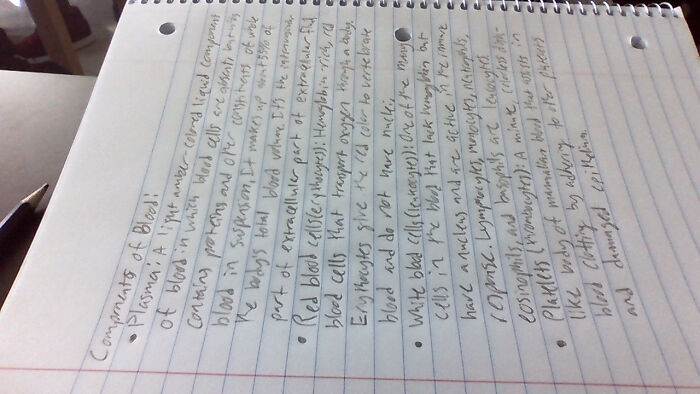 Components of Blood:
• Plasma: A light amber colored liquid component
of blood in which blood cells are absent but
contains proteins and other constituents of whole
blood in suspension. It makes up about 55% of
the body's total blood volume. It's the intravascular
part of extracellular part of extracellular fluid
• Red blood cells (erythrocytes): Hemoglobin rich, red
blood cells that transport oxygen through a body.
Erythrocytes give the red color to vertebrate
blood and do not have nuclei.
• White blood cells (leukocytes): One of the many
cells in the blood that lack hemoglobin but
have a nucleus and are active in the immune
response. Lymphocytes, monocytes, neutrophils,
eosinophils and basophils are leukocytes
• Platelets (thrombocytes): A minute, colorless disk-
like body of mammalian blood that assists in
blood clotting by adhering to other platelets
and damaged epithelium.